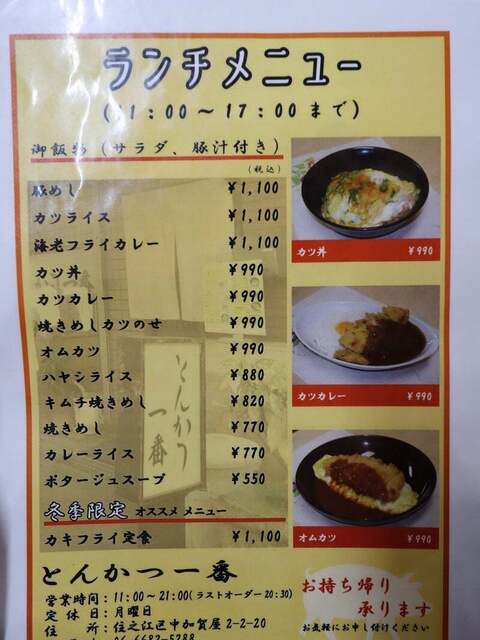 ランチメニュー
(11:00～17:00まで)
御飯物 (サラダ、豚汁付き)
(税込)
豚めし ¥1,100
カツライス ¥1,100
海老フライカレー ¥1,100
カツ丼 ¥990
カツカレー ¥990
焼きめしカツのせ ¥990
オムカツ ¥990
ハヤシライス ¥880
キムチ焼きめし ¥820
焼きめし ¥770
カレーライス ¥770
ポタージュスープ ¥550
冬季限定 オススメ メニュー
カキフライ定食 ¥1,100
カツ丼 ¥990
カツカレー ¥990
オムカツ ¥990
とんかつ一番
とんかつ一番
営業時間:11:00～21:00(ラストオーダー20:30)
定休日:月曜日
住所:住之江区中加賀屋2-2-20
06-6682-5288
お持ち帰り
承ります
お気軽にお申し付けください